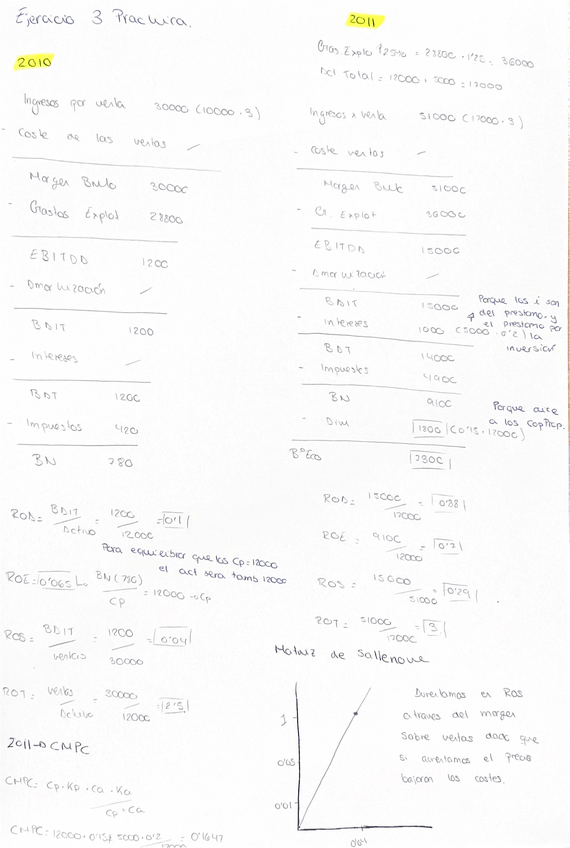 Ejercicio 3 Practica.
2010
Ingresos por venta 30000 (10000 · 3)
- Coste de las ventas /
Margen Bruto 30000
- Gastos Explot 28800
EBITDA 1200
- Amortización /
BAIT 1200
- Intereses /
BAT 1200
- Impuestos 420
BN 780
ROA = BAIT / Activo = 1200 / 12000 = 0'1
Para equilibrar que los Cp = 12000
el act sera tamb 12000
ROE = 0'065 BN (780) / Cp = 12000 → Cp
ROS = BAIT / ventas = 1200 / 30000 = 0'04
ROT = ventas / Activo = 30000 / 12000 = 2'5
2011 → CMPC
CMPC = Cp · Kp + Ca · Ka / Cp + Ca
CMPC = 12000 · 0'15 + 5000 · 0'2 / 17000 = 0'1647
2011
Gtos. Explo = 28800 · 1'25 = 36000
Act Total = 12000 + 5000 = 17000
Ingresos x venta 51000 (17000 · 3)
- Coste ventas /
Margen Bruto 51000
- G. Explot 36000
EBITDA 15000
- Amortización /
BAIT 15000
- Intereses 1000 (5000 · 0'2)
Porque los i son
del prestamo y
el prestamo por
la
inversión
BAT 14000
- Impuestos 4900
BN 9100
- Div 1800 (0'15 · 12000)
Porque dice
a los Cap Prop.
Bº Eco 7300
ROA = 15000 / 17000 = 0'88
ROE = 9100 / 12000 = 0'7
ROS = 15000 / 51000 = 0'29
ROT = 51000 / 17000 = 3
Matriz de Sallenave
1
0'05
0'01
0'04
Aumentamos en ROS
a traves del margen
sobre ventas dado que
si aumentamos el precio
bajaran los costes.